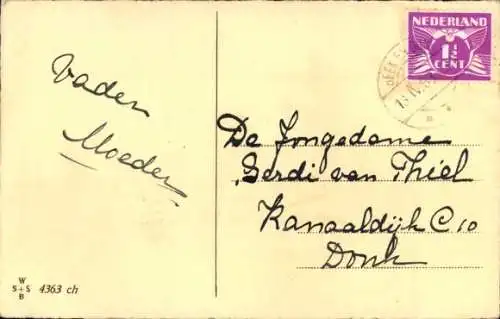 Vader
Moeder
NEDERLAND
1½
CENT
De Jongedame
Gerdi van Thiel
Kanaaldijk C 10
Donk
W
S+S
B
4363 ch